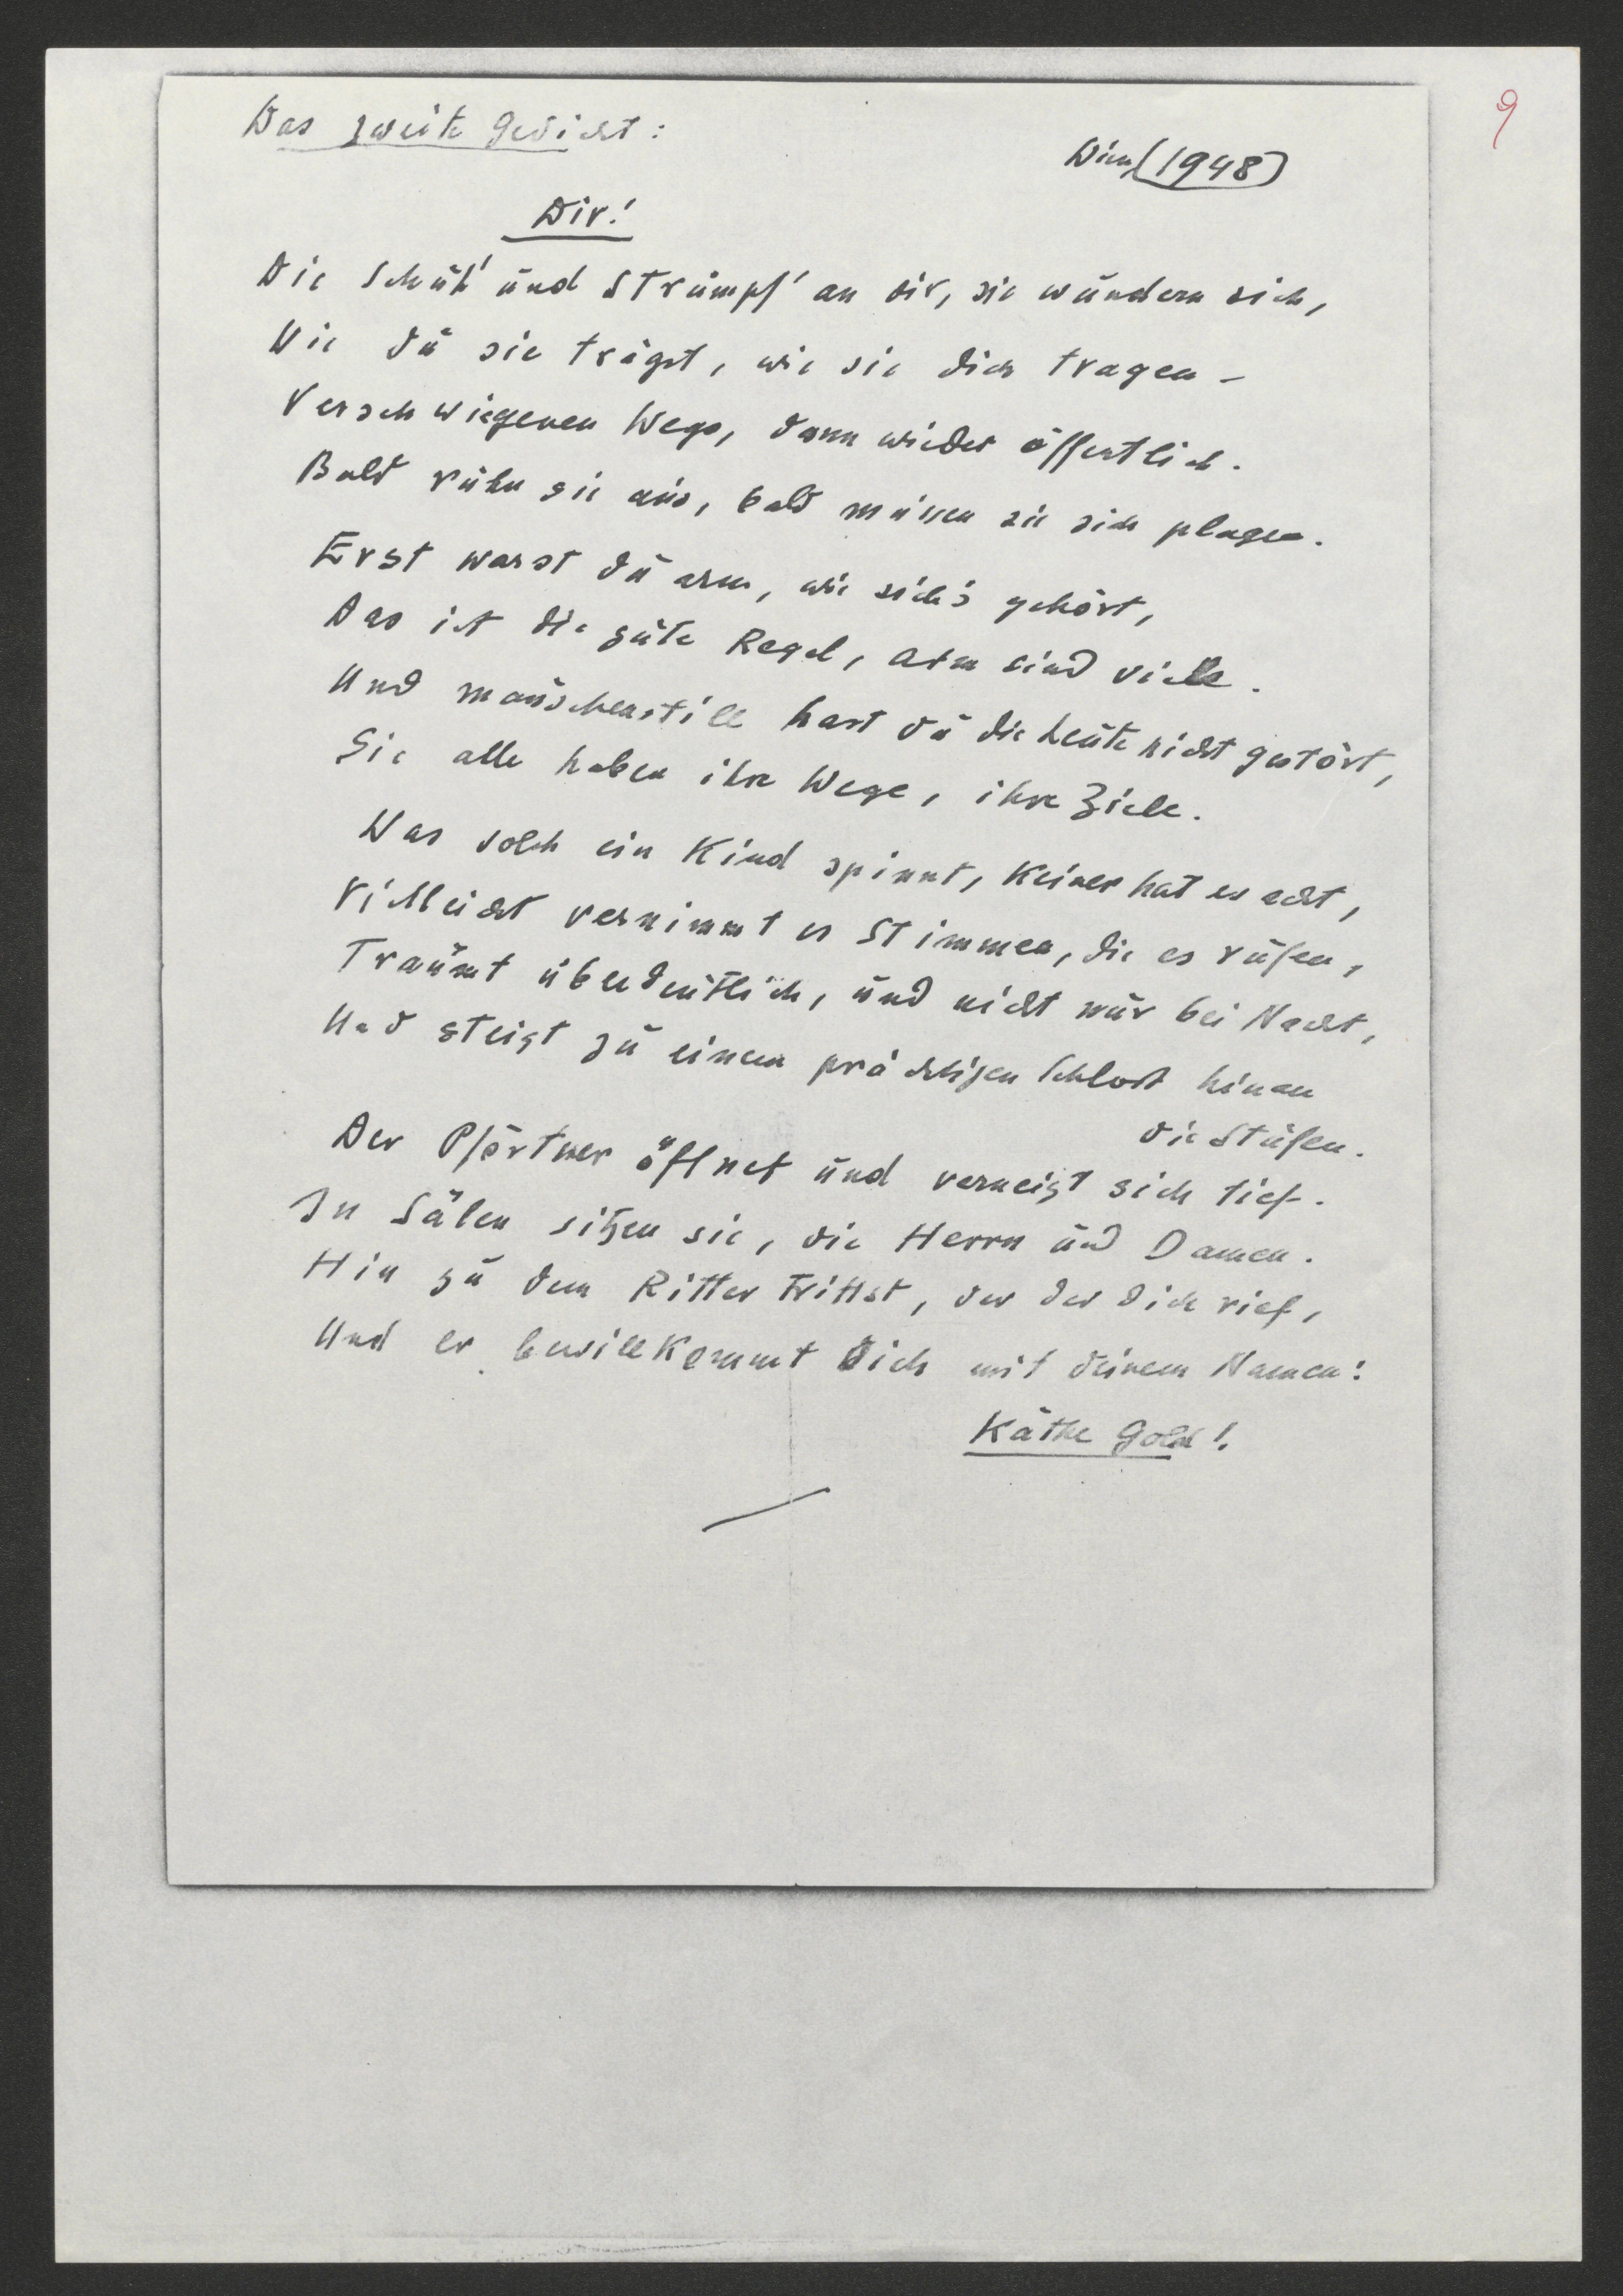 9
Das zweite Gedicht:
Wien, (1948)
Dir!
Die Schuh' und Strümpf' an dir, sie wundern sich,
Wie du sie trägst, wie sie dich tragen –
Verschwiegenen Wegs, dann wieder öffentlich.
Bald ruhn sie aus, bald müssen sie sich plagen.
Erst warst du arm, wie sich's gehört,
Das ist die gute Regel, arm sind viele.
Und mäuschenstill hast du die Leute nicht gestört,
Sie alle haben ihre Wege, ihre Ziele.
Was solch ein Kind spinnt, Keiner hat es acht,
Vielleicht vernimmt es Stimmen, die es rufen,
Träumt überdeutlich, und nicht nur bei Nacht,
Und steigt zu einem prächtigen Schloss hinan
die Stufen.
Der Pförtner öffnet und verneigt sich tief.
In Sälen sitzen sie, die Herrn und Damen.
Hin zu dem Ritter trittst, der der dich rief,
Und er bewillkommt dich mit deinem Namen:
Käthe Gold!